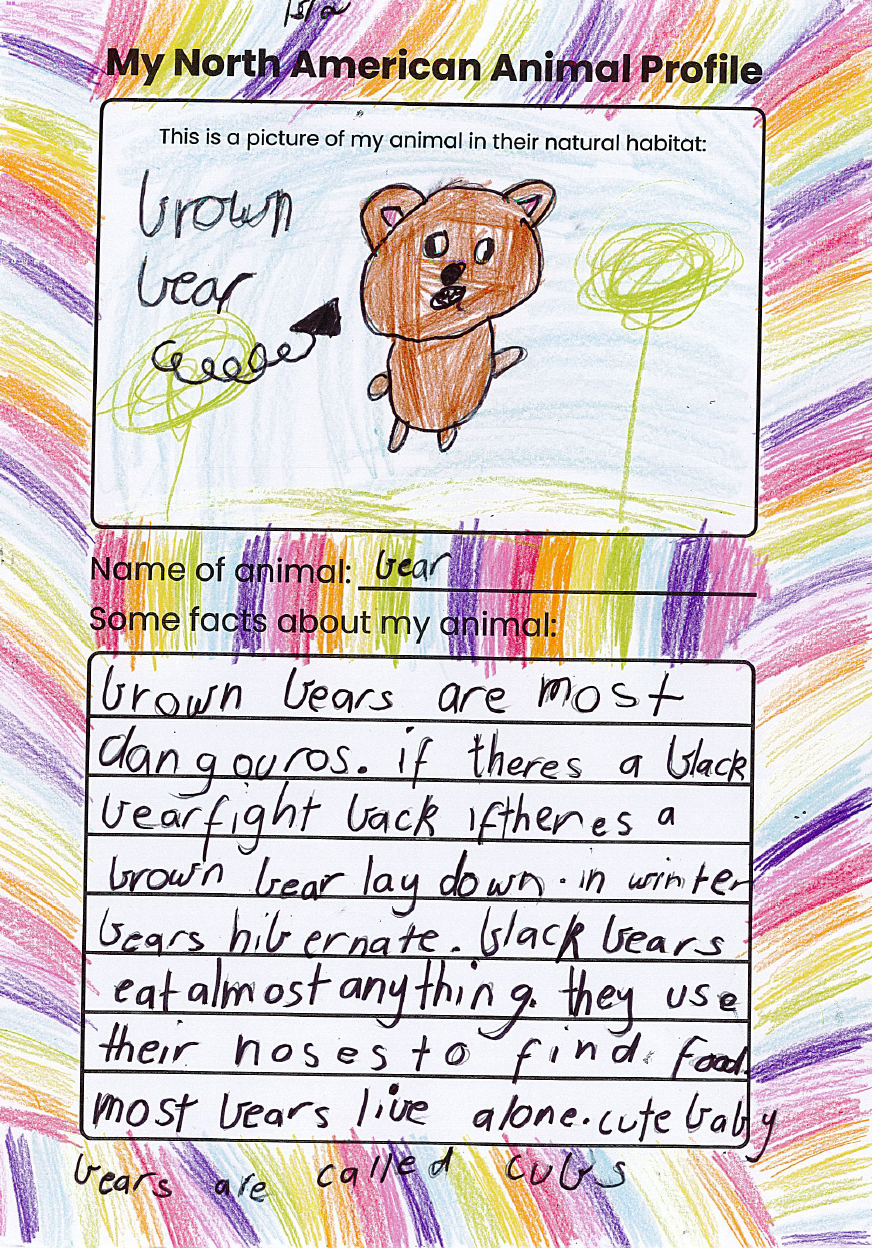 Isla
My North American Animal Profile
This is a picture of my animal in their natural habitat:
brown
bear
Name of animal: bear
Some facts about my animal:
brown bears are most
dangouros. if theres a black
bear fight back if theres a
brown bear lay down. in winter
bears hibernate. black bears
eat almost anything. they use
their noses to find food.
most bears live alone. cute baby
bears are called cubs